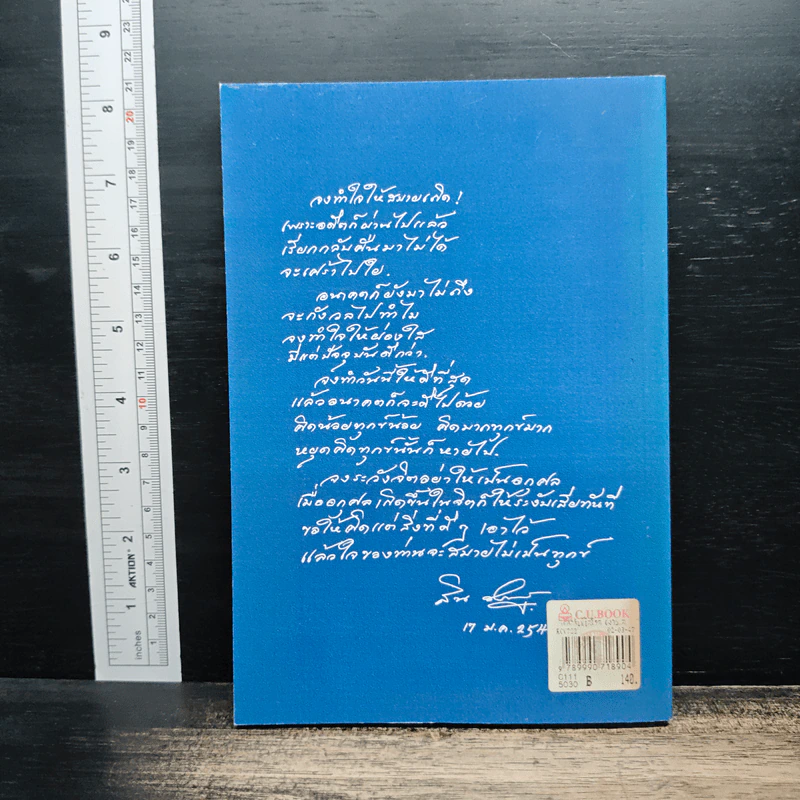 จงทำใจให้สบายเถิด!
เพราะอดีตก็ผ่านไปแล้ว
เรียกกลับคืนมาไม่ได้
จะเศร้าไปใย.
อนาคตก็ยังมาไม่ถึง
จะกังวลไปทำไม
จงทำใจให้ผ่องใส
มีแต่ปัจจุบันดีกว่า.
จงทำวันนี้ให้ดีที่สุด
แล้วอนาคตก็จะดีไปด้วย
คิดน้อยทุกข์น้อย คิดมากทุกข์มาก
หยุดคิดทุกข์นั้นก็หายไป.
จงระวังจิตอย่าให้เป็นอกุศล
เมื่ออกุศลเกิดขึ้นในจิตก็ให้ระงับเสียทันที
ขอให้คิดแต่สิ่งที่ดี ๆ เอาไว้
แล้วใจของท่านจะสบายไม่เป็นทุกข์
17 ม.ค. 254
C.U.BOOK
9 789990 718904
0111
5030 B 140.
inches
AKTION
1
2
3
4
5
6
7
8
9